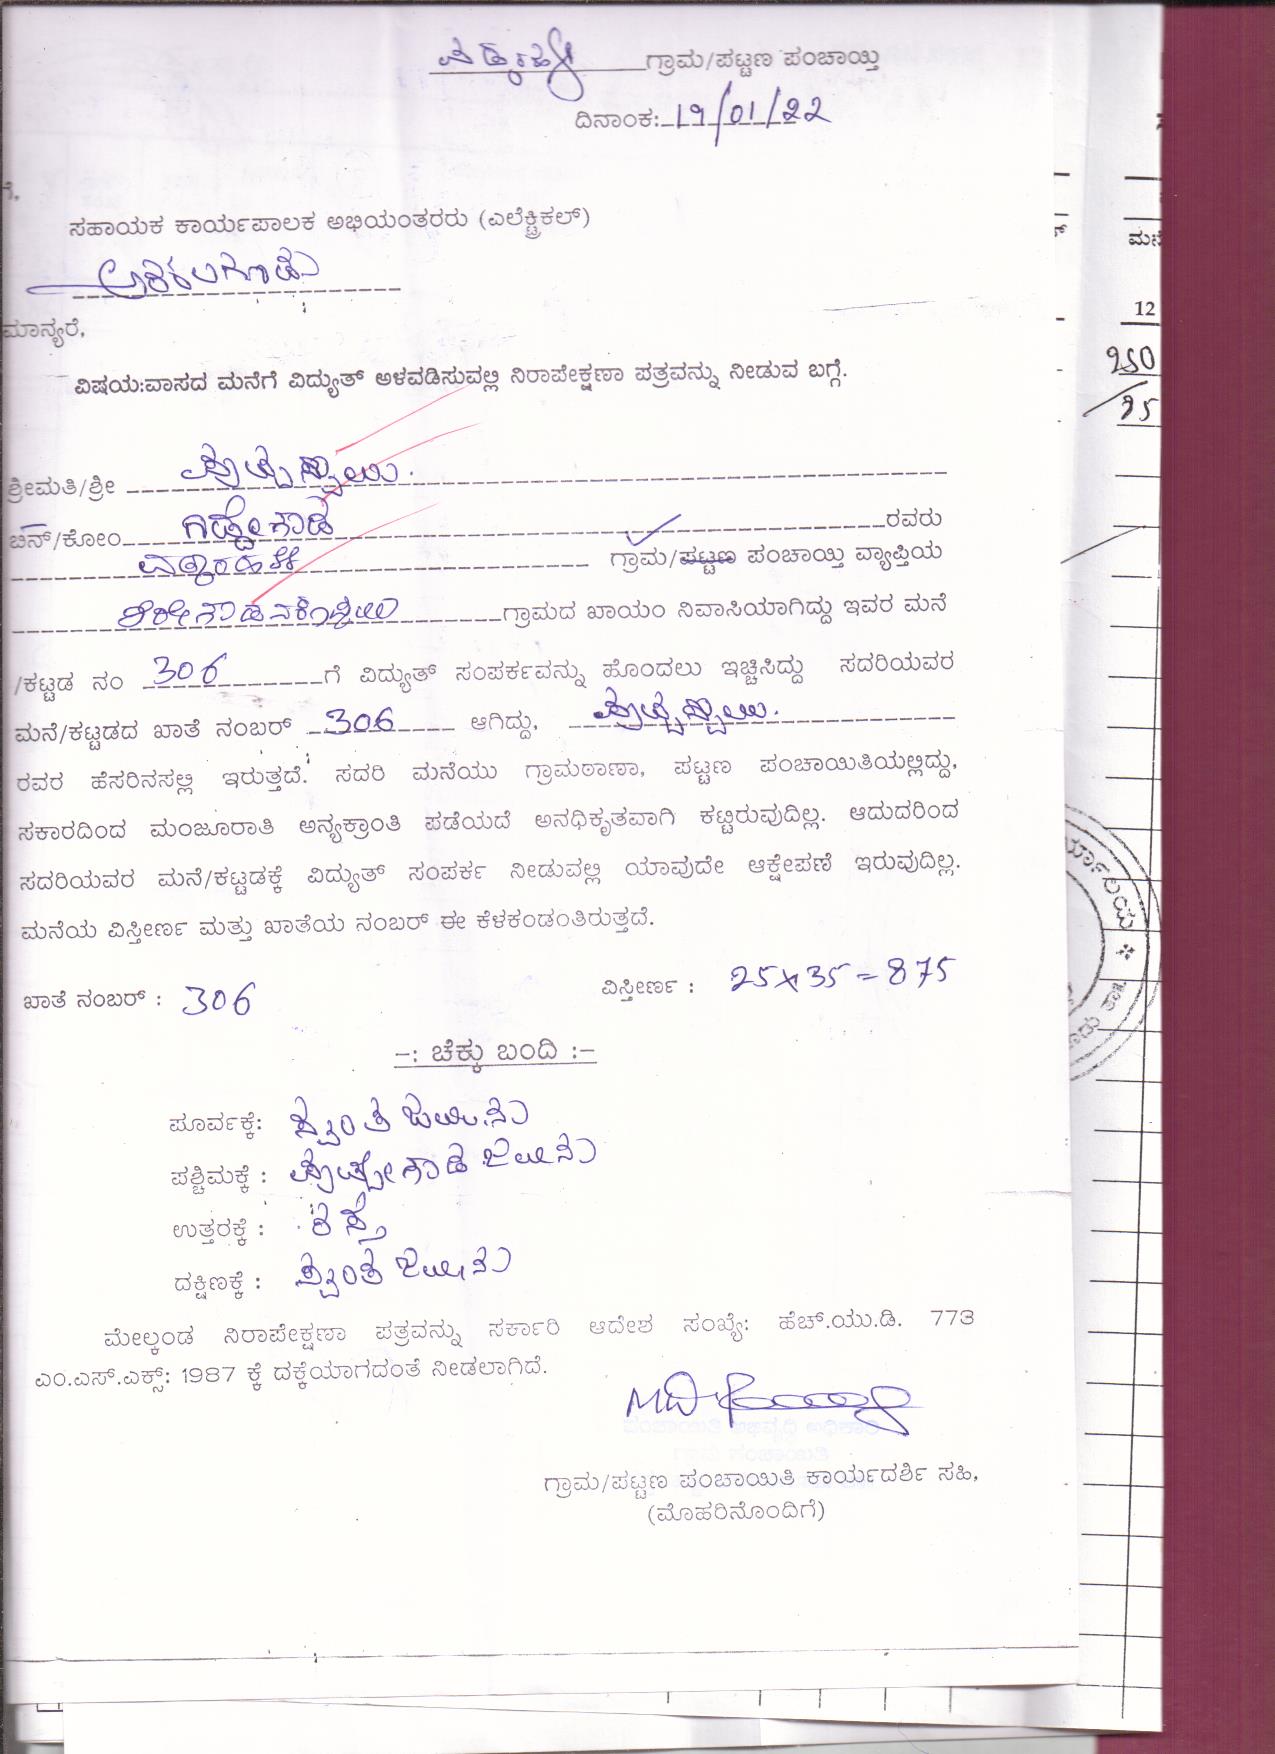 ಗ್ರಾಮ/ಪಟ್ಟಣ ಪಂಚಾಯ್ತಿ
ದಿನಾಂಕ: 19/01/22
ಗೆ,
ಸಹಾಯಕ ಕಾರ್ಯಪಾಲಕ ಅಭಿಯಂತರರು (ಎಲೆಕ್ಟ್ರಿಕಲ್)
ಅರಕಲಗೂಡು
ಮಾನ್ಯರೆ,
ವಿಷಯ:ವಾಸದ ಮನೆಗೆ ವಿದ್ಯುತ್ ಅಳವಡಿಸುವಲ್ಲಿ ನಿರಾಪೇಕ್ಷಣಾ ಪತ್ರವನ್ನು ನೀಡುವ ಬಗ್ಗೆ.
ಶ್ರೀಮತಿ/ಶ್ರೀ ಪುಟ್ಟಸ್ವಾಮಿ.
ಬಿನ್/ಕೋಂ ರವರು
ಗ್ರಾಮ/ಪಟ್ಟಣ ಪಂಚಾಯ್ತಿ ವ್ಯಾಪ್ತಿಯ
ಗ್ರಾಮದ ಖಾಯಂ ನಿವಾಸಿಯಾಗಿದ್ದು ಇವರ ಮನೆ
/ಕಟ್ಟಡ ನಂ 306 ಗೆ ವಿದ್ಯುತ್ ಸಂಪರ್ಕವನ್ನು ಹೊಂದಲು ಇಚ್ಚಿಸಿದ್ದು ಸದರಿಯವರ
ಮನೆ/ಕಟ್ಟಡದ ಖಾತೆ ನಂಬರ್ 306 ಆಗಿದ್ದು, ಪುಟ್ಟಸ್ವಾಮಿ.
ರವರ ಹೆಸರಿನಸಲ್ಲಿ ಇರುತ್ತದೆ. ಸದರಿ ಮನೆಯು ಗ್ರಾಮಠಾಣಾ, ಪಟ್ಟಣ ಪಂಚಾಯಿತಿಯಲ್ಲಿದ್ದು,
ಸಕಾರದಿಂದ ಮಂಜೂರಾತಿ ಅನ್ಯಕ್ರಾಂತಿ ಪಡೆಯದೆ ಅನಧಿಕೃತವಾಗಿ ಕಟ್ಟಿರುವುದಿಲ್ಲ. ಆದುದರಿಂದ
ಸದರಿಯವರ ಮನೆ/ಕಟ್ಟಡಕ್ಕೆ ವಿದ್ಯುತ್ ಸಂಪರ್ಕ ನೀಡುವಲ್ಲಿ ಯಾವುದೇ ಆಕ್ಷೇಪಣೆ ಇರುವುದಿಲ್ಲ.
ಮನೆಯ ವಿಸ್ತೀರ್ಣ ಮತ್ತು ಖಾತೆಯ ನಂಬರ್ ಈ ಕೆಳಕಂಡಂತಿರುತ್ತದೆ.
ಖಾತೆ ನಂಬರ್ : 306 ವಿಸ್ತೀರ್ಣ : 25x35=875
-: ಚೆಕ್ಕು ಬಂದಿ :-
ಪೂರ್ವಕ್ಕೆ: ಸ್ವಂತ ಜಮೀನು
ಪಶ್ಚಿಮಕ್ಕೆ : ಪುಟ್ಟೇಗೌಡ ಜಮೀನು
ಉತ್ತರಕ್ಕೆ : ರಸ್ತೆ
ದಕ್ಷಿಣಕ್ಕೆ : ಸ್ವಂತ ಜಮೀನು
ಮೇಲ್ಕಂಡ ನಿರಾಪೇಕ್ಷಣಾ ಪತ್ರವನ್ನು ಸರ್ಕಾರಿ ಆದೇಶ ಸಂಖ್ಯೆ: ಹೆಚ್.ಯು.ಡಿ. 773
ಎಂ.ಎಸ್.ಎಕ್ಸ್: 1987 ಕ್ಕೆ ದಕ್ಕೆಯಾಗದಂತೆ ನೀಡಲಾಗಿದೆ.
ಗ್ರಾಮ/ಪಟ್ಟಣ ಪಂಚಾಯಿತಿ ಕಾರ್ಯದರ್ಶಿ ಸಹಿ,
(ಮೊಹರಿನೊಂದಿಗೆ)
12
250